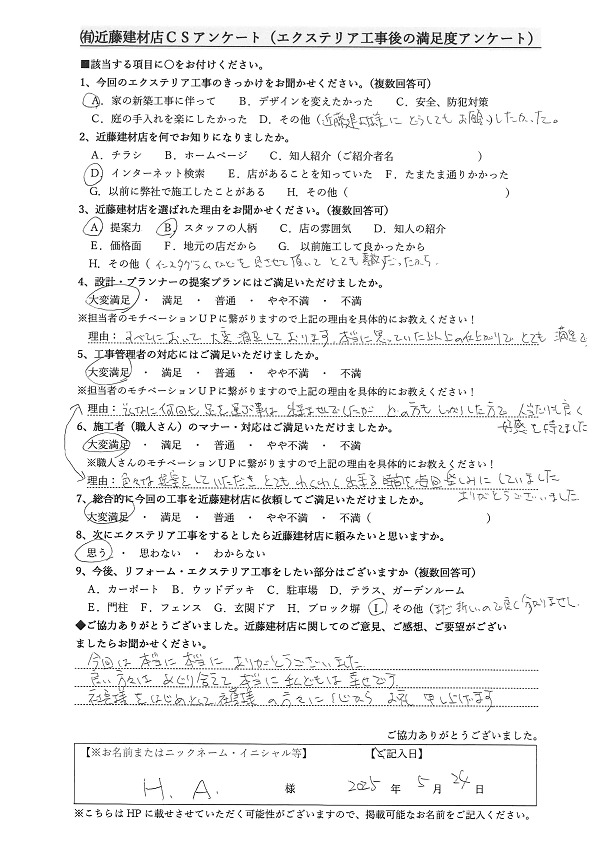 ㈲近藤建材店ＣＳアンケート（エクステリア工事後の満足度アンケート）
■該当する項目に〇をお付けください。
1、今回のエクステリア工事のきっかけをお聞かせください。（複数回答可）
A．家の新築工事に伴って　B．デザインを変えたかった　C．安全、防犯対策
C．庭の手入れを楽にしたかった　D．その他（近藤建材様に どうしてもお願いしたかった。
2、近藤建材店を何でお知りになりましたか。
A．チラシ　B．ホームページ　C．知人紹介（ご紹介者名　　　）
D．インターネット検索　E．店があることを知っていた　F．たまたま通りかかった
G．以前に弊社で施工したことがある　H．その他（　　　）
3、近藤建材店を選ばれた理由をお聞かせください。（複数回答可）
A）提案力　B）スタッフの人柄　C．店の雰囲気　D．知人の紹介
E．価格面　F．地元の店だから　G．以前施工して良かったから
H．その他（インスタグラムなどを見させて頂いて とても素敵だったから。
4、設計・プランナーの提案プランにはご満足いただけましたか。
大変満足　・　満足　・　普通　・　やや不満　・　不満
※担当者のモチベーションＵＰに繋がりますので上記の理由を具体的にお教えください！
理由：すべてにおいて 大変 満足しております。本当に思っていた以上の仕上がりで とても 満足で
5、工事管理者の対応にはご満足いただけましたか。
大変満足　・　満足　・　普通　・　やや不満　・　不満
※担当者のモチベーションＵＰに繋がりますので上記の理由を具体的にお教えください！
理由：そんなに何回も 足を運ぶ事は 出来ませんでしたが どの方も しっかりした方で 人当たりも良く
好感を持てました
6、施工者（職人さん）のマナー・対応はご満足いただけましたか。
大変満足　・　満足　・　普通　・　やや不満　・　不満
※職人さんのモチベーションＵＰに繋がりますので上記の理由を具体的にお教えください！
理由：色々な 提案をしていただき とても わくわく 出来る 時間を毎回 楽しみに していました
ありがとうございました
7、総合的に今回の工事を近藤建材店に依頼してご満足いただけましたか。
大変満足　・　満足　・　普通　・　やや不満　・　不満（　　　）
8、次にエクステリア工事をするとしたら近藤建材店に頼みたいと思いますか。
思う　・　思わない　・　わからない
9、今後、リフォーム・エクステリア工事をしたい部分はございますか（複数回答可）
A．カーポート　B．ウッドデッキ　C．駐車場　D．テラス、ガーデンルーム
E．門柱　F．フェンス　G．玄関ドア　H．ブロック塀　I．その他（まだ新しいので良く分かりません。
◆ご協力ありがとうございました。近藤建材店に関してのご意見、ご感想、ご要望がござい
ましたらお聞かせください。
今回は 本当に 本当に ありがとうございました
良い方々に めぐり会えて 本当に 私どもは 幸せです。
社長様をはじめとして 皆様 の 方々に 心から お礼 申し上げます
ご協力ありがとうございました。
【※お名前またはニックネーム・イニシャル等】　【ご記入日】
H. A. 様　2025 年 5 月 24 日
※こちらは HP に載せさせていただく可能性がございますので、掲載可能なお名前をご記入ください。